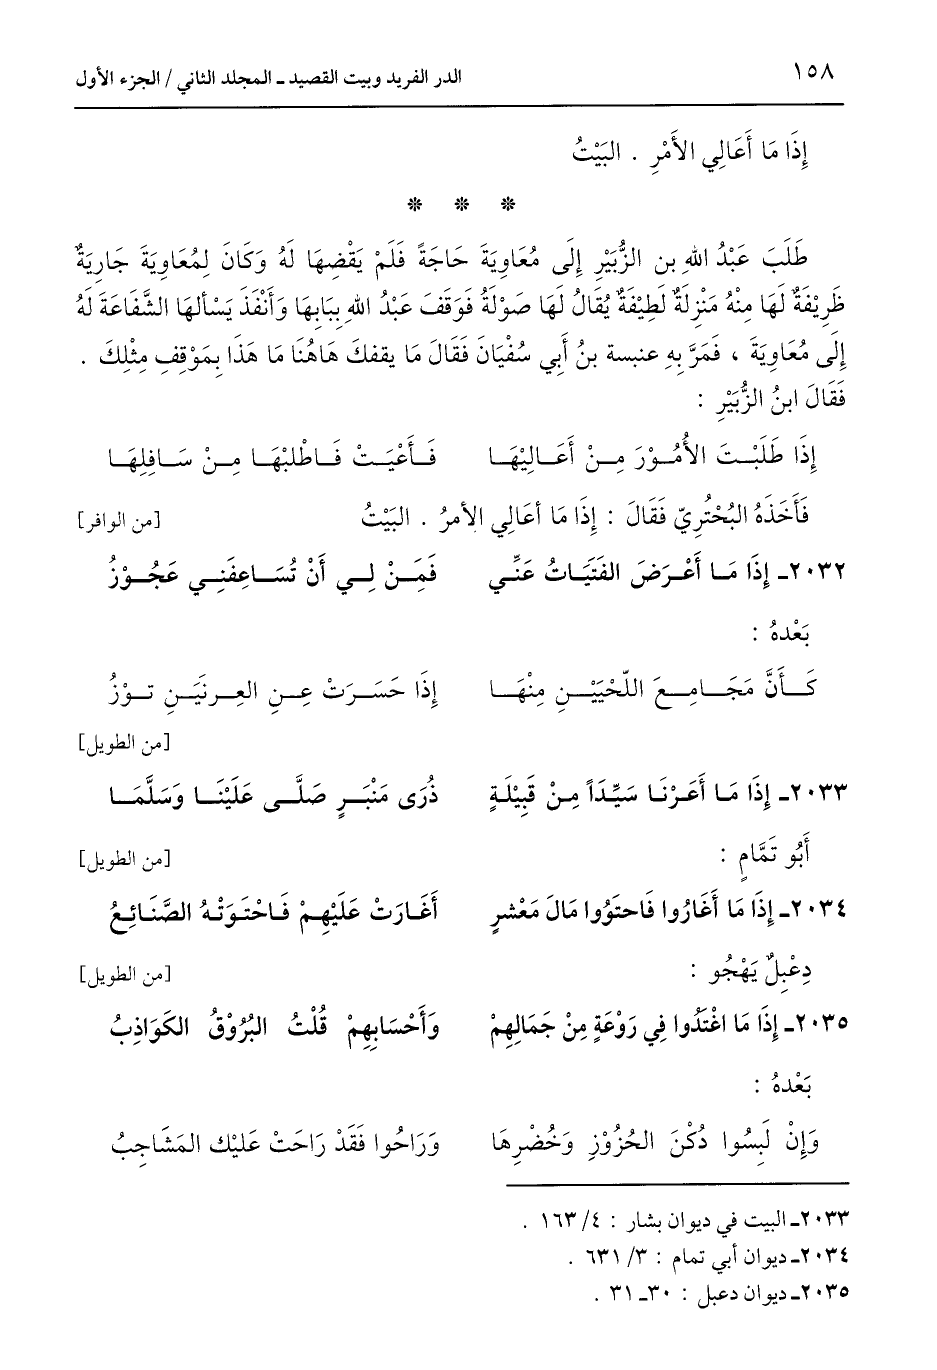 ١٥٨ الدر الفريد وبيت القصيد ـ المجلد الثاني / الجزء الأول
إِذَا مَا أَعَالِي الأَمْرِ . البَيْتُ
* * *
طَلَبَ عَبْدُ اللهِ بن الزُّبَيْرِ إِلَى مُعَاوِيَةَ حَاجَةً فَلَمْ يَقْضِهَا لَهُ وَكَانَ لِمُعَاوِيَةَ جَارِيَةٌ
ظَرِيْفَةٌ لَهَا مِنْهُ مَنْزِلَةٌ لَطِيْفَةٌ يُقَالُ لَهَا صَوْلَةُ فَوَقَفَ عَبْدُ اللهِ بِبَابِهَا وَأَنْفَذَ يَسْألهَا الشَّفَاعَةَ لَهُ
إِلَى مُعَاوِيَةَ ، فَمَرَّ بِهِ عنبسة بنُ أَبِي سُفْيَانَ فَقَالَ مَا يقفكَ هَاهُنَا مَا هَذَا بِمَوْقِفِ مِثْلِكَ .
فَقَالَ ابنُ الزُّبَيْرِ :
إِذَا طَلَبْتَ الأُمُوْرَ مِنْ أَعَالِيْهَا فَأَعْيَتْ فَاطْلبْهَا مِنْ سَافِلِهَا
فَأَخَذَهُ البُحْتُرِيّ فَقَالَ : إِذَا مَا أعَالِي الأمرُ . البَيْتُ [من الوافر]
٢٠٣٢ـ إِذَا مَا أَعْرَضَ الفَتَيَاتُ عَنِّي فَمَنْ لِي أَنْ تُسَاعِفَنِي عَجُوْزُ
بَعْدهُ :
كَأَنَّ مَجَامِعَ اللّحْيَيْنِ مِنْهَا إِذَا حَسَرَتْ عِنِ العِرنَيَنِ تَوْزُ
[من الطويل]
٢٠٣٣ـ إِذَا مَا أَعَرْنَا سَيِّدَاً مِنْ قَبِيْلَةٍ ذُرَى مَنْبَرٍ صَلَّى عَلَيْنَا وَسَلَّمَا
أَبُو تَمَّامٍ : [من الطويل]
٢٠٣٤ـ إِذَا مَا أَغَارُوا فَاحتَوُوا مَالَ مَعْشرٍ أَغَارَتْ عَلَيْهِمْ فَاحْتَوَتْهُ الصَّنَائِعُ
دِعْبِلٌ يَهْجُو : [من الطويل]
٢٠٣٥ـ إِذَا مَا اغْتَدُوا فِي رَوْعَةٍ مِنْ جَمَالِهِمْ وَأَحْسَابِهِمْ قُلْتُ البُرُوْقُ الكَوَاذِبُ
بَعْدهُ :
وَإِنْ لَبِسُوا دُكْنَ الخُزُوْزِ وَخُضْرِهَا وَرَاحُوا فَقَدْ رَاحَتْ عَلَيْك المَشَاجِبُ
٢٠٣٣ـ البيت في ديوان بشار : ٤/ ١٦٣ .
٢٠٣٤ـ ديوان أبي تمام : ٣/ ٦٣١ .
٢٠٣٥ـ ديوان دعبل : ٣٠ـ ٣١ .